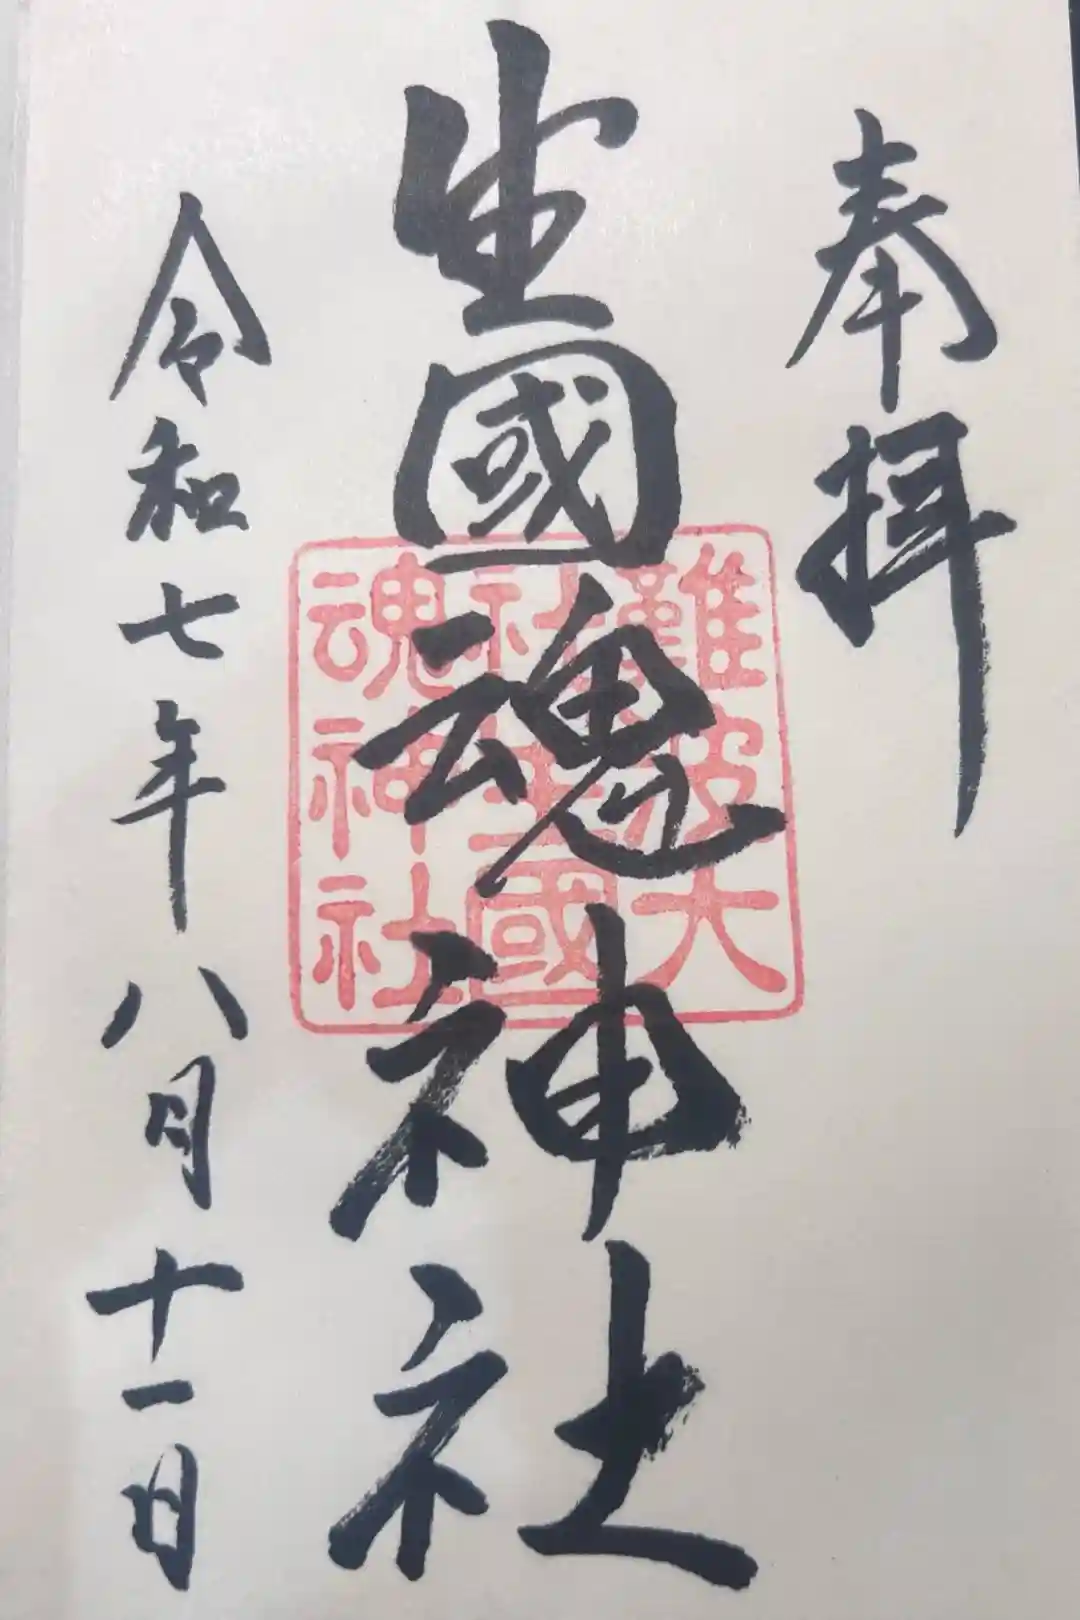 奉拝
生國魂神社
難波大
社生國
魂神社
令和七年八月十一日